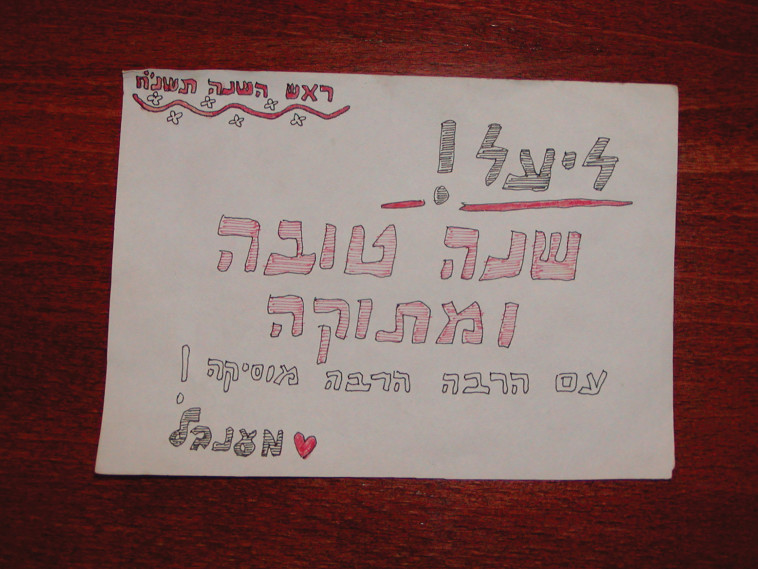 ראש השנה תשנ"ח
ליעל!
שנה טובה
ומתוקה
עם הרבה הרבה מוסיקה!
מענבל